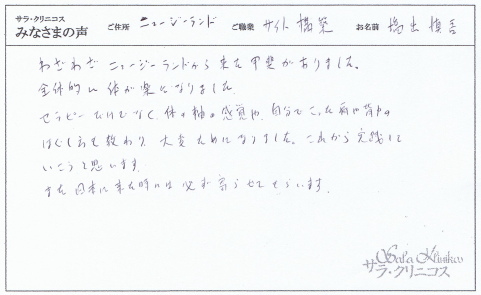 サラ・クリニコス
みなさまの声
ご住所 ニュージーランド ご職業 サイト構築 お名前 塙出慎吾
わざわざ ニュージーランドから来た甲斐がありました。
全体的に体が楽になりました。
セラピーだけでなく、体の軸の感覚や、自分でこった肩や背中の
ほぐし方も教わり、大変ためになりました。これから実践して
いこうと思います。
また日本に来た時には必ず寄らせてもらいます。
Sala Klinikos
サラ・クリニコス